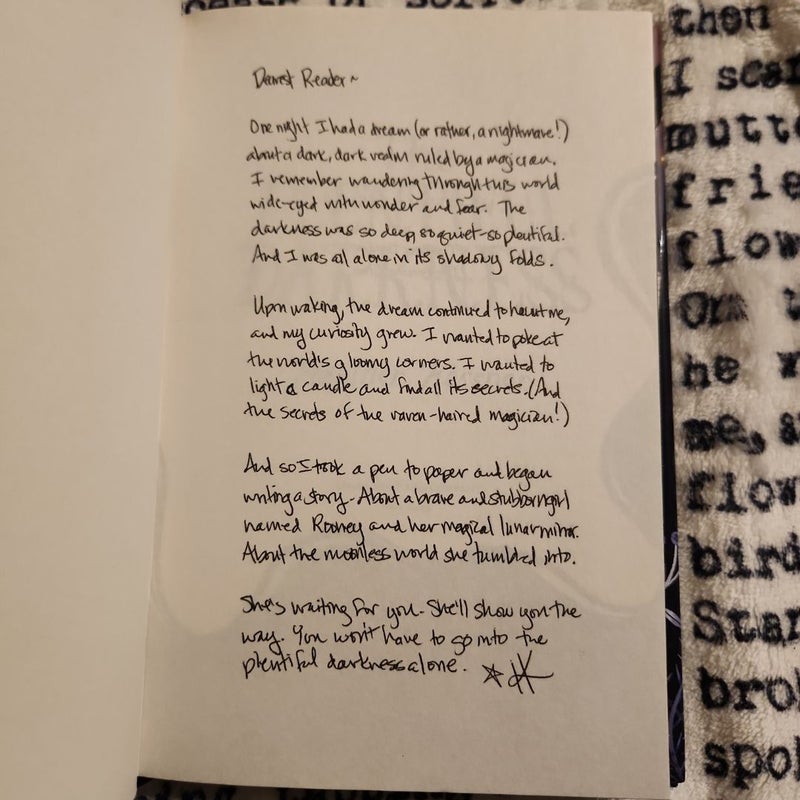 Dearest Reader~
One night I had a dream (or rather, a nightmare!)
about a dark, dark realm ruled by a magician.
I remember wandering through this world
wide-eyed with wonder and fear. The
darkness was so deep, so quiet-so plentiful.
And I was all alone in its shadowy folds.
Upon waking, the dream continued to haunt me,
and my curiosity grew. I wanted to poke at
the world's gloomy corners. I wanted to
light a candle and find all its secrets. (And
the secrets of the raven-haired magician!)
And so I took a pen to paper and began
writing a story- About a brave and stubborn girl
named Rooney and her magical lunar mirror.
About the moonless world she tumbled into.
She's waiting for you. She'll show you the
way. You won't have to go into the
plentiful darkness alone. ☆ HK
then
I scar
mutte
frie
flow
On t
he w
me, a
flow
bird
Star
brok
spok